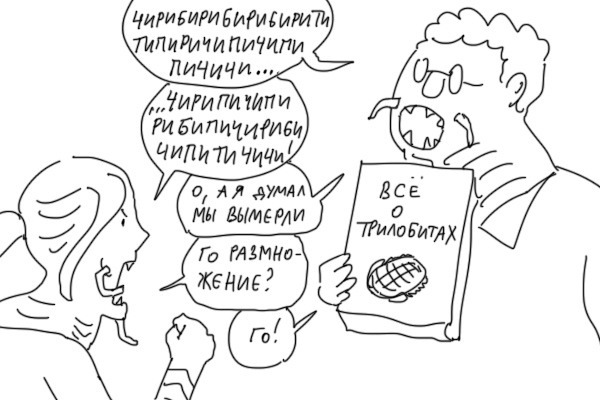 ЧИРИБИРИБИРИБИРИТИ
ТИПИРИЧИПИЧИПИ
ПИЧИЧИ...
...ЧИРИПИЧИПИ
РИБИПИЧИРИБИ
ЧИПИТИЧИЧИ!
О, А Я ДУМАЛ
МЫ ВЫМЕРЛИ
ГО РАЗМНО-
ЖЕНИЕ?
ГО!
ВСЁ
О
ТРИЛОБИТАХ